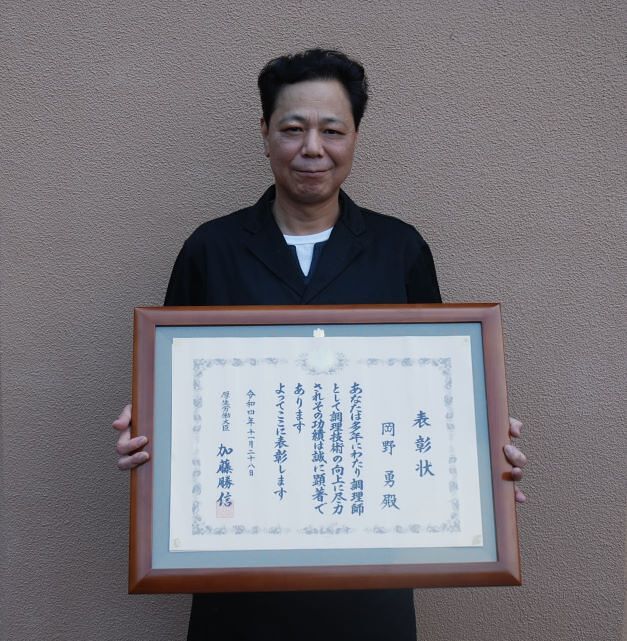 表彰状
岡野 勇 殿
あなたは多年にわたり調理師
として調理技術の向上に尽力
されその功績は誠に顕著で
あります
よってここに表彰します
令和四年十一月二十八日
厚生労働大臣 加藤勝信